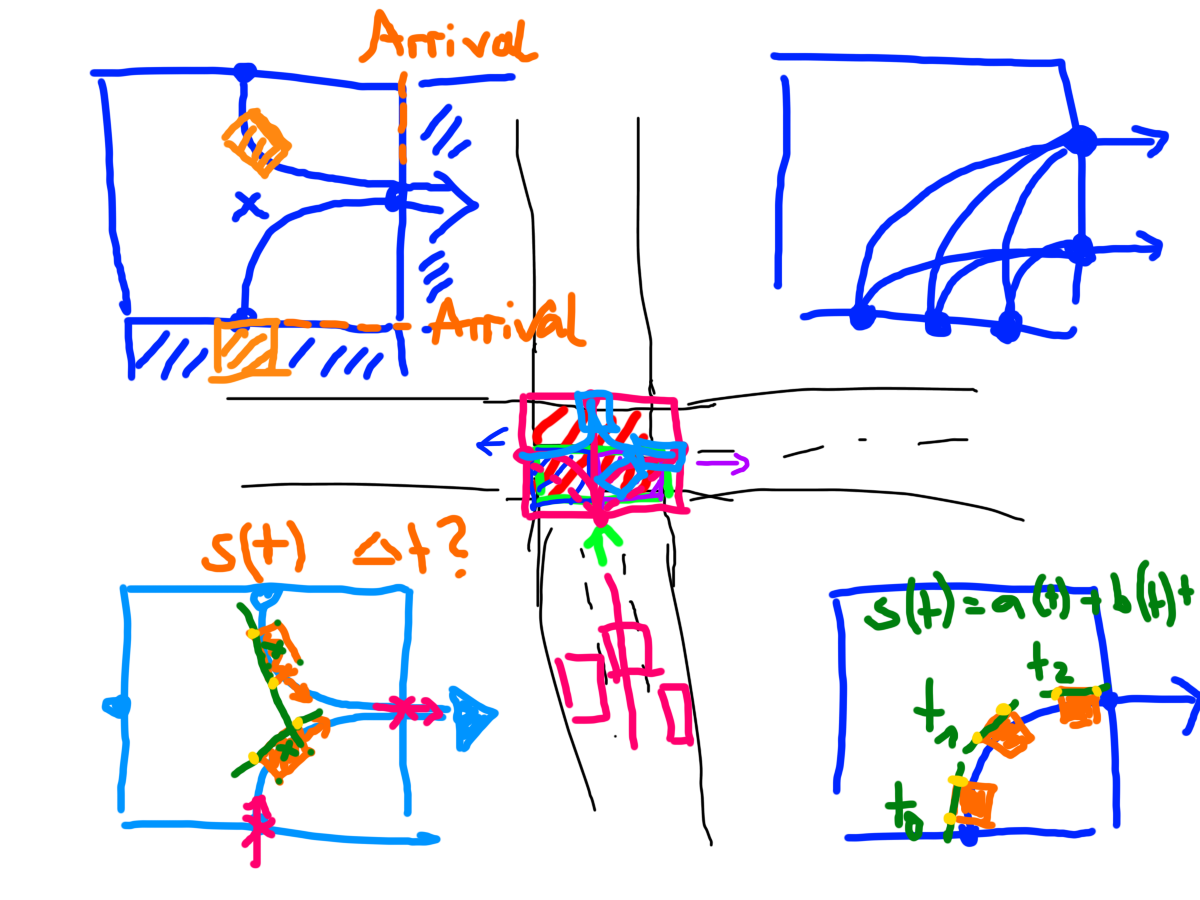 Arrival
Arrival
x
s(t) Δt?
s(t)=a(t)+b(t)+
t₂
t₁
t₀